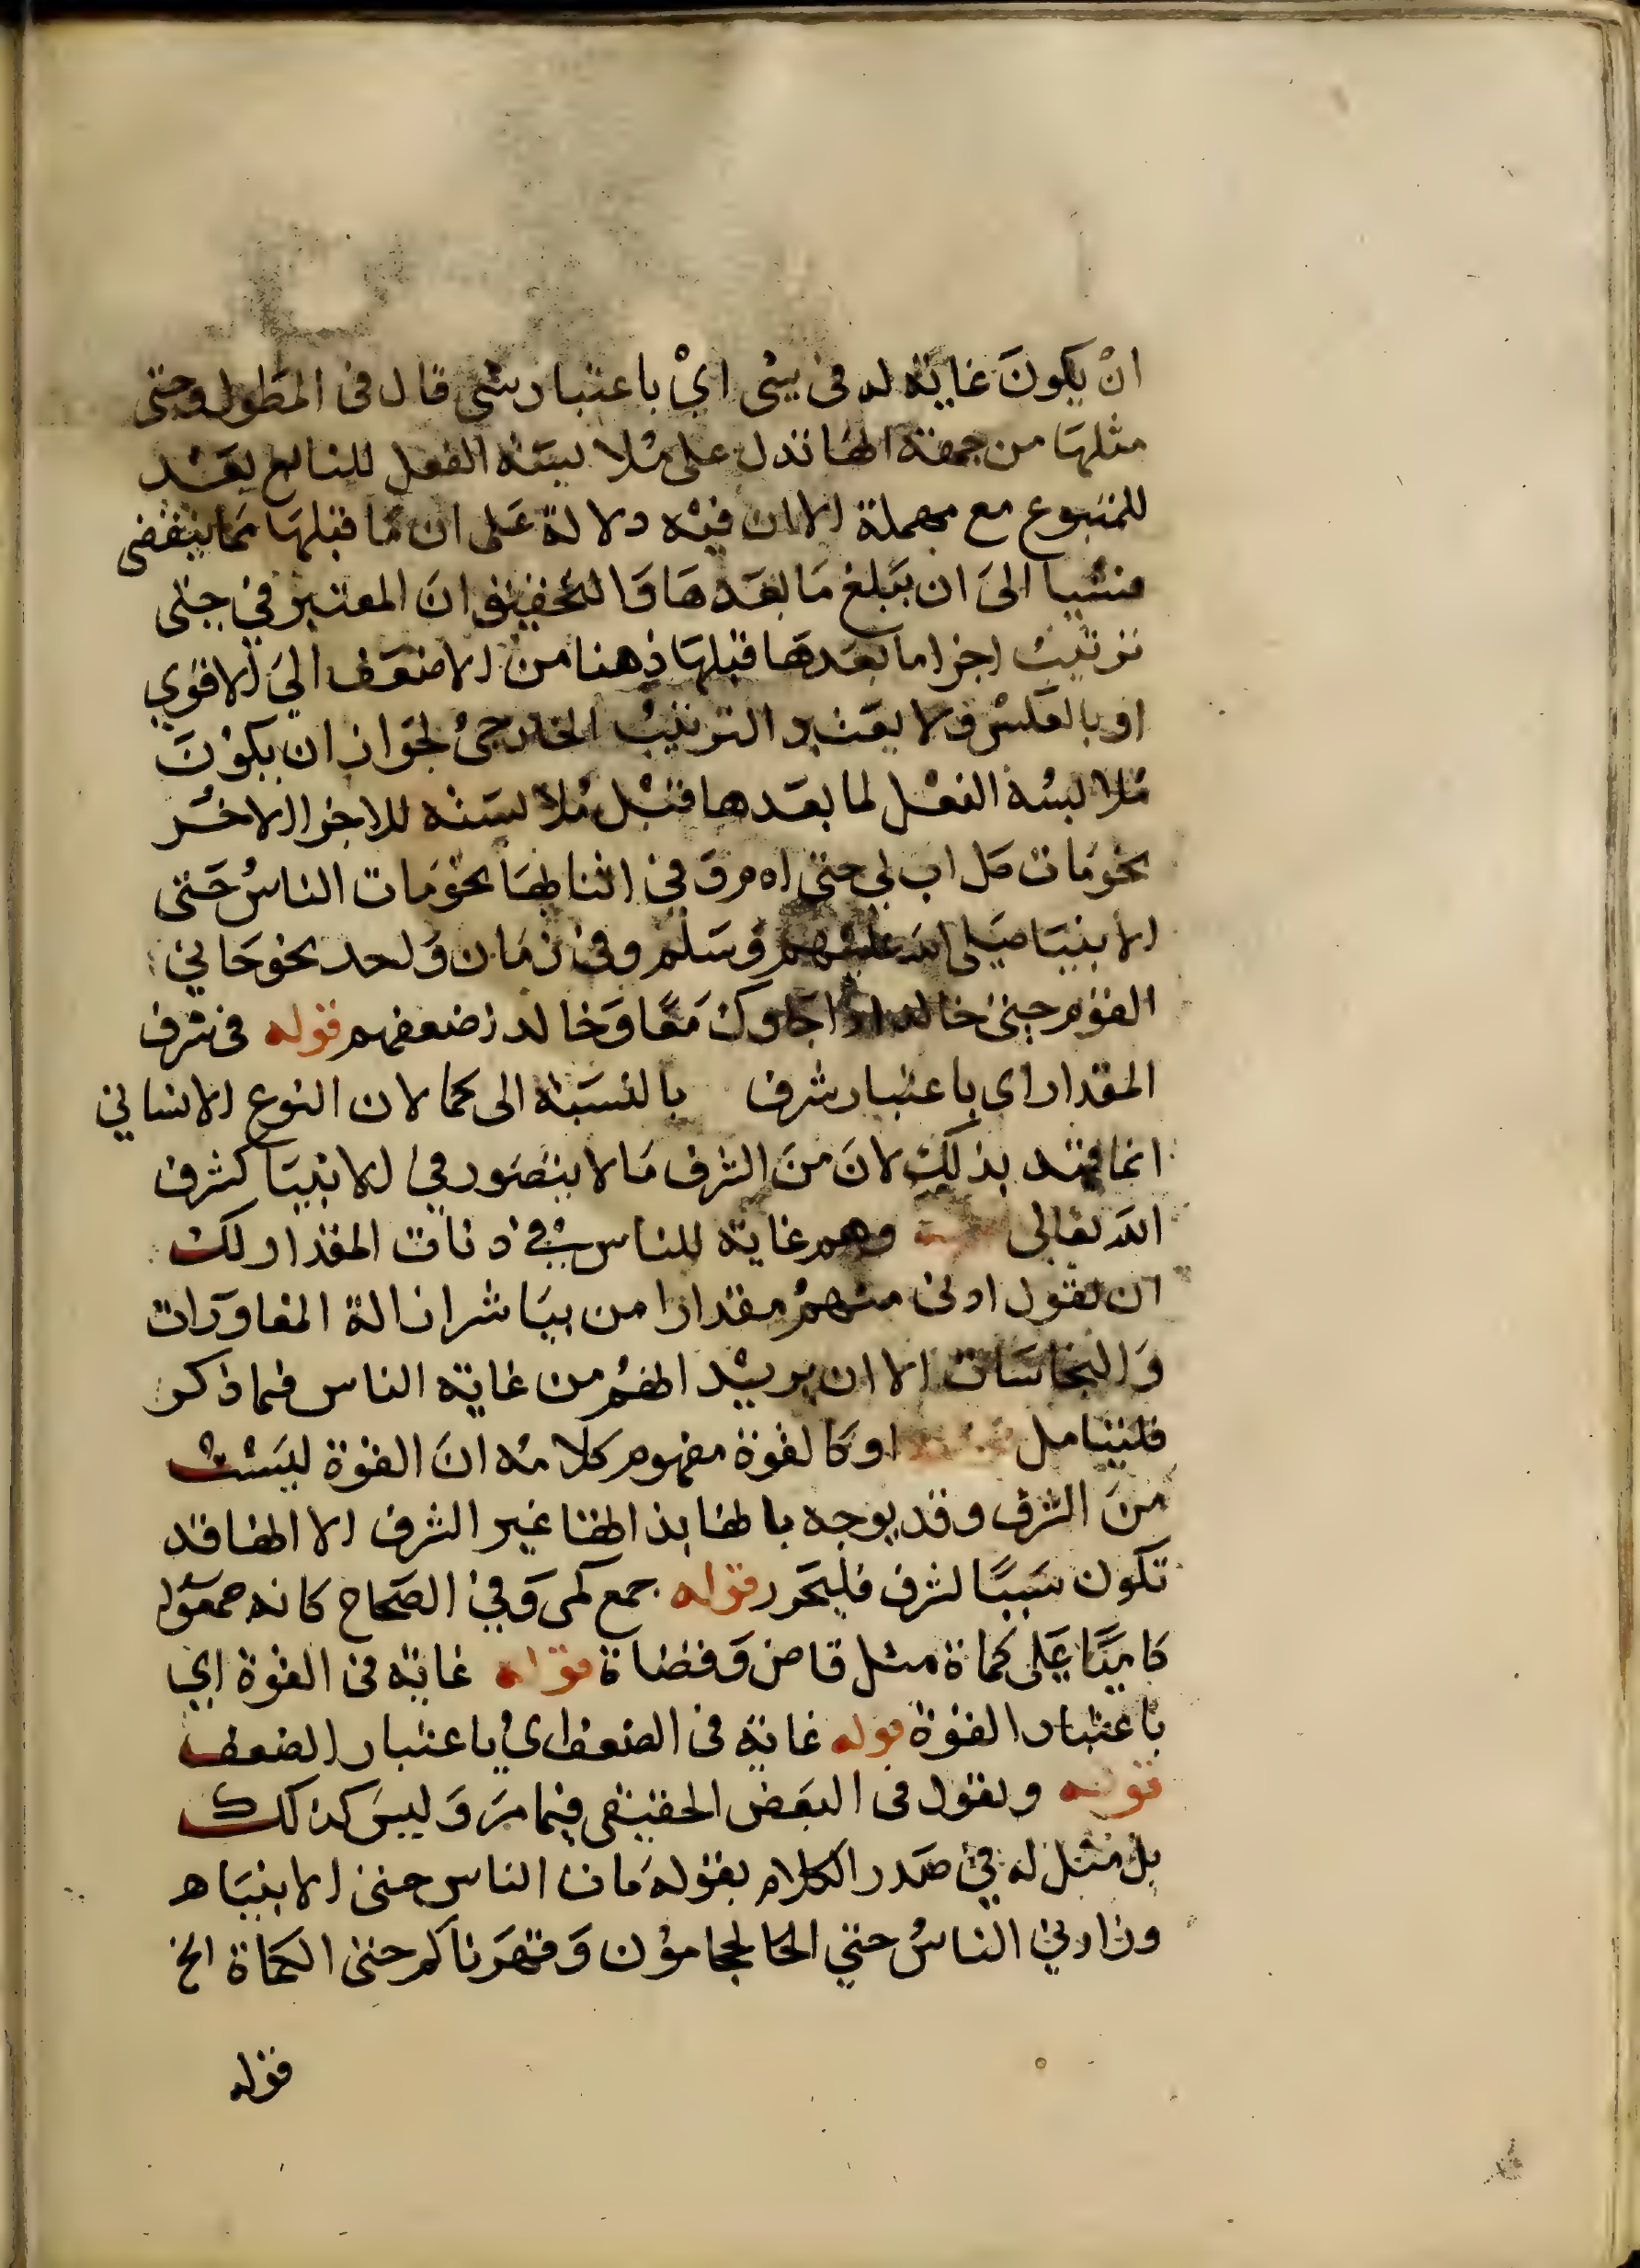 ان يكون غاية له في شي اي باعتبار شي قال في المطول وحتى
مثلها من جهة انها تدل على ملابسة الفعل للتابع بعد
للمتبوع مع مهملة الا ان فيه دلالة على ان ما قبلها مما ينقضى
شيا الى ان يبلغ ما بعدها والتحقيق ان المعتبر في حتى
ترتيب اجزا ما بعدها قبلها ذهنا من الاضعف الي الاقوي
او بالعكس ولا يعتبر الترتيب الخارجي لجواز ان يكون
ملابسة الفعل لما بعدها قبل ملابسته للاجزا الاخر
نحو مات كل اب لي حتى ادم وفي اثنائها نحو مات الناس حتى
الانبيا صلى الله عليهم وسلم وفي زمان واحد نحو جاني
القوم حتى خالد اذا جاوك معا وخالد اضعفهم قوله في شرف
المقدار اى باعتبار شرف بالنسبة الى كمالات النوع الانساني
انما قيد بذلك لان من الشرف ما لا يتصور في الانبيا كشرف
الله تعالى وهم غاية للناس في دنات المقدار لك
ان تقول ادنى منهم مقدارا من يباشر ازالة القاذورات
والنجاسات الا ان يريد انهم من غاية الناس فما ذكر
فليتامل او كالقوة مفهوم كلامه ان القوة ليست
من الشرف وقد يوجه بانها بذاتها غير الشرف الا انها قد
تكون سببا لشرف فليحرر قوله جمع كمى وفي الصحاح كانه جمعوا
كاميا على كماة مثل قاض وقضاة قوله غاية في القوة اي
باعتبار القوة قوله غاية في الضعف اي باعتبار الضعف
قوله ويقول في البعض الحقيقى فيما مر وليس كذلك
بل مثل له في صدر الكلام بقوله مات الناس حتى الانبيا ه
وزادني الناس حتي الحجامون وقهرناكم حتى الكماة الخ
قوله